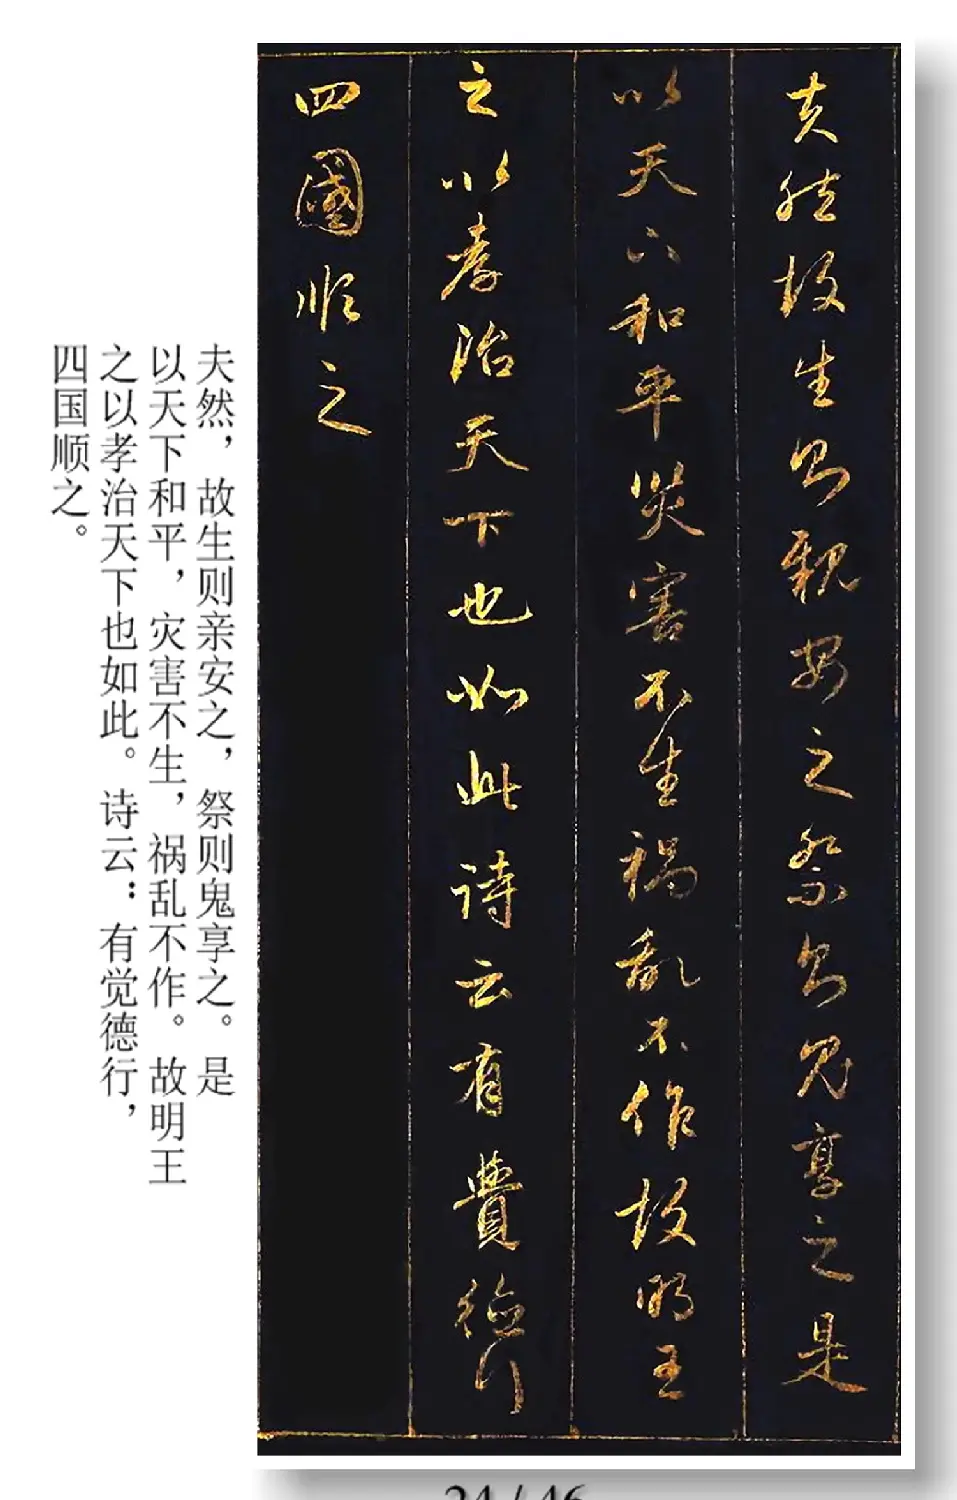 夫然故生则親安之祭则鬼享之是
以天下和平災害不生禍亂不作故明王
之以孝治天下也如此诗云有覺德行
四國順之
夫然，故生则亲安之，祭则鬼享之。是
以天下和平，灾害不生，祸乱不作。故明王
之以孝治天下也如此。诗云：有觉德行，
四国顺之。
24/46